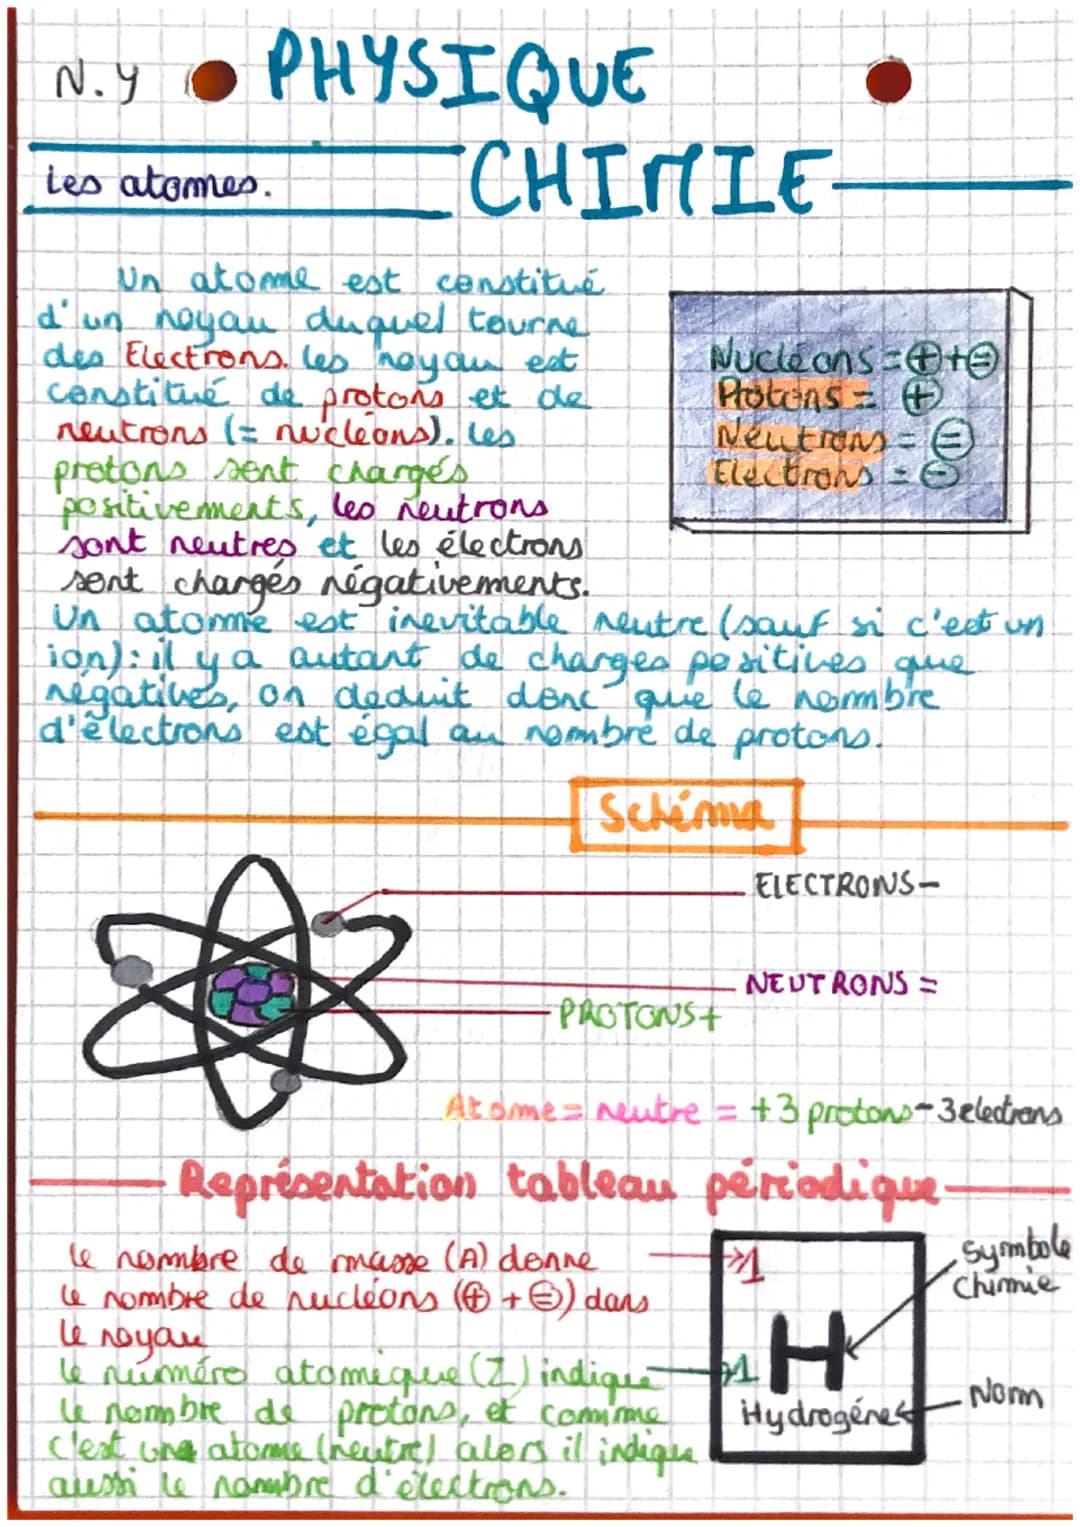 N.Y
PHYSIQUE
CHIMIE
Les atomes.
Un atome est constitué
d'un noyau duquel tourne
des Electrons. Les noyau est
constitué de protons et de
neutrons (= nucléons). Les
protons sont chargés
positivements, les neutrons
sont neutres et les électrons
sont chargés négativements.
Nucléons = ⊕ + ⊜
Protons = ⊕
Neutrons = ⊜
Electrons = ⊖
Un atome est inevitable neutre (sauf si c'est un
ion): il y a autant de charges positives que
négatives, on deduit donc que le nombre
d'électrons est égal au nombre de protons.
Schéma
ELECTRONS -
NEUTRONS =
PROTONS +
Atome = neutre = +3 protons - 3 electrons
Représentation tableau périodique
le nombre de masse (A) donne
le nombre de nucléons (⊕ + ⊜) dans
le noyau
le numéro atomique (Z) indique
le nombre de protons, et comme
c'est une atome (neutre) alors il indique
aussi le nombre d'électrons.
1
H
1
Hydrogéne
symbole
chimie
Nom